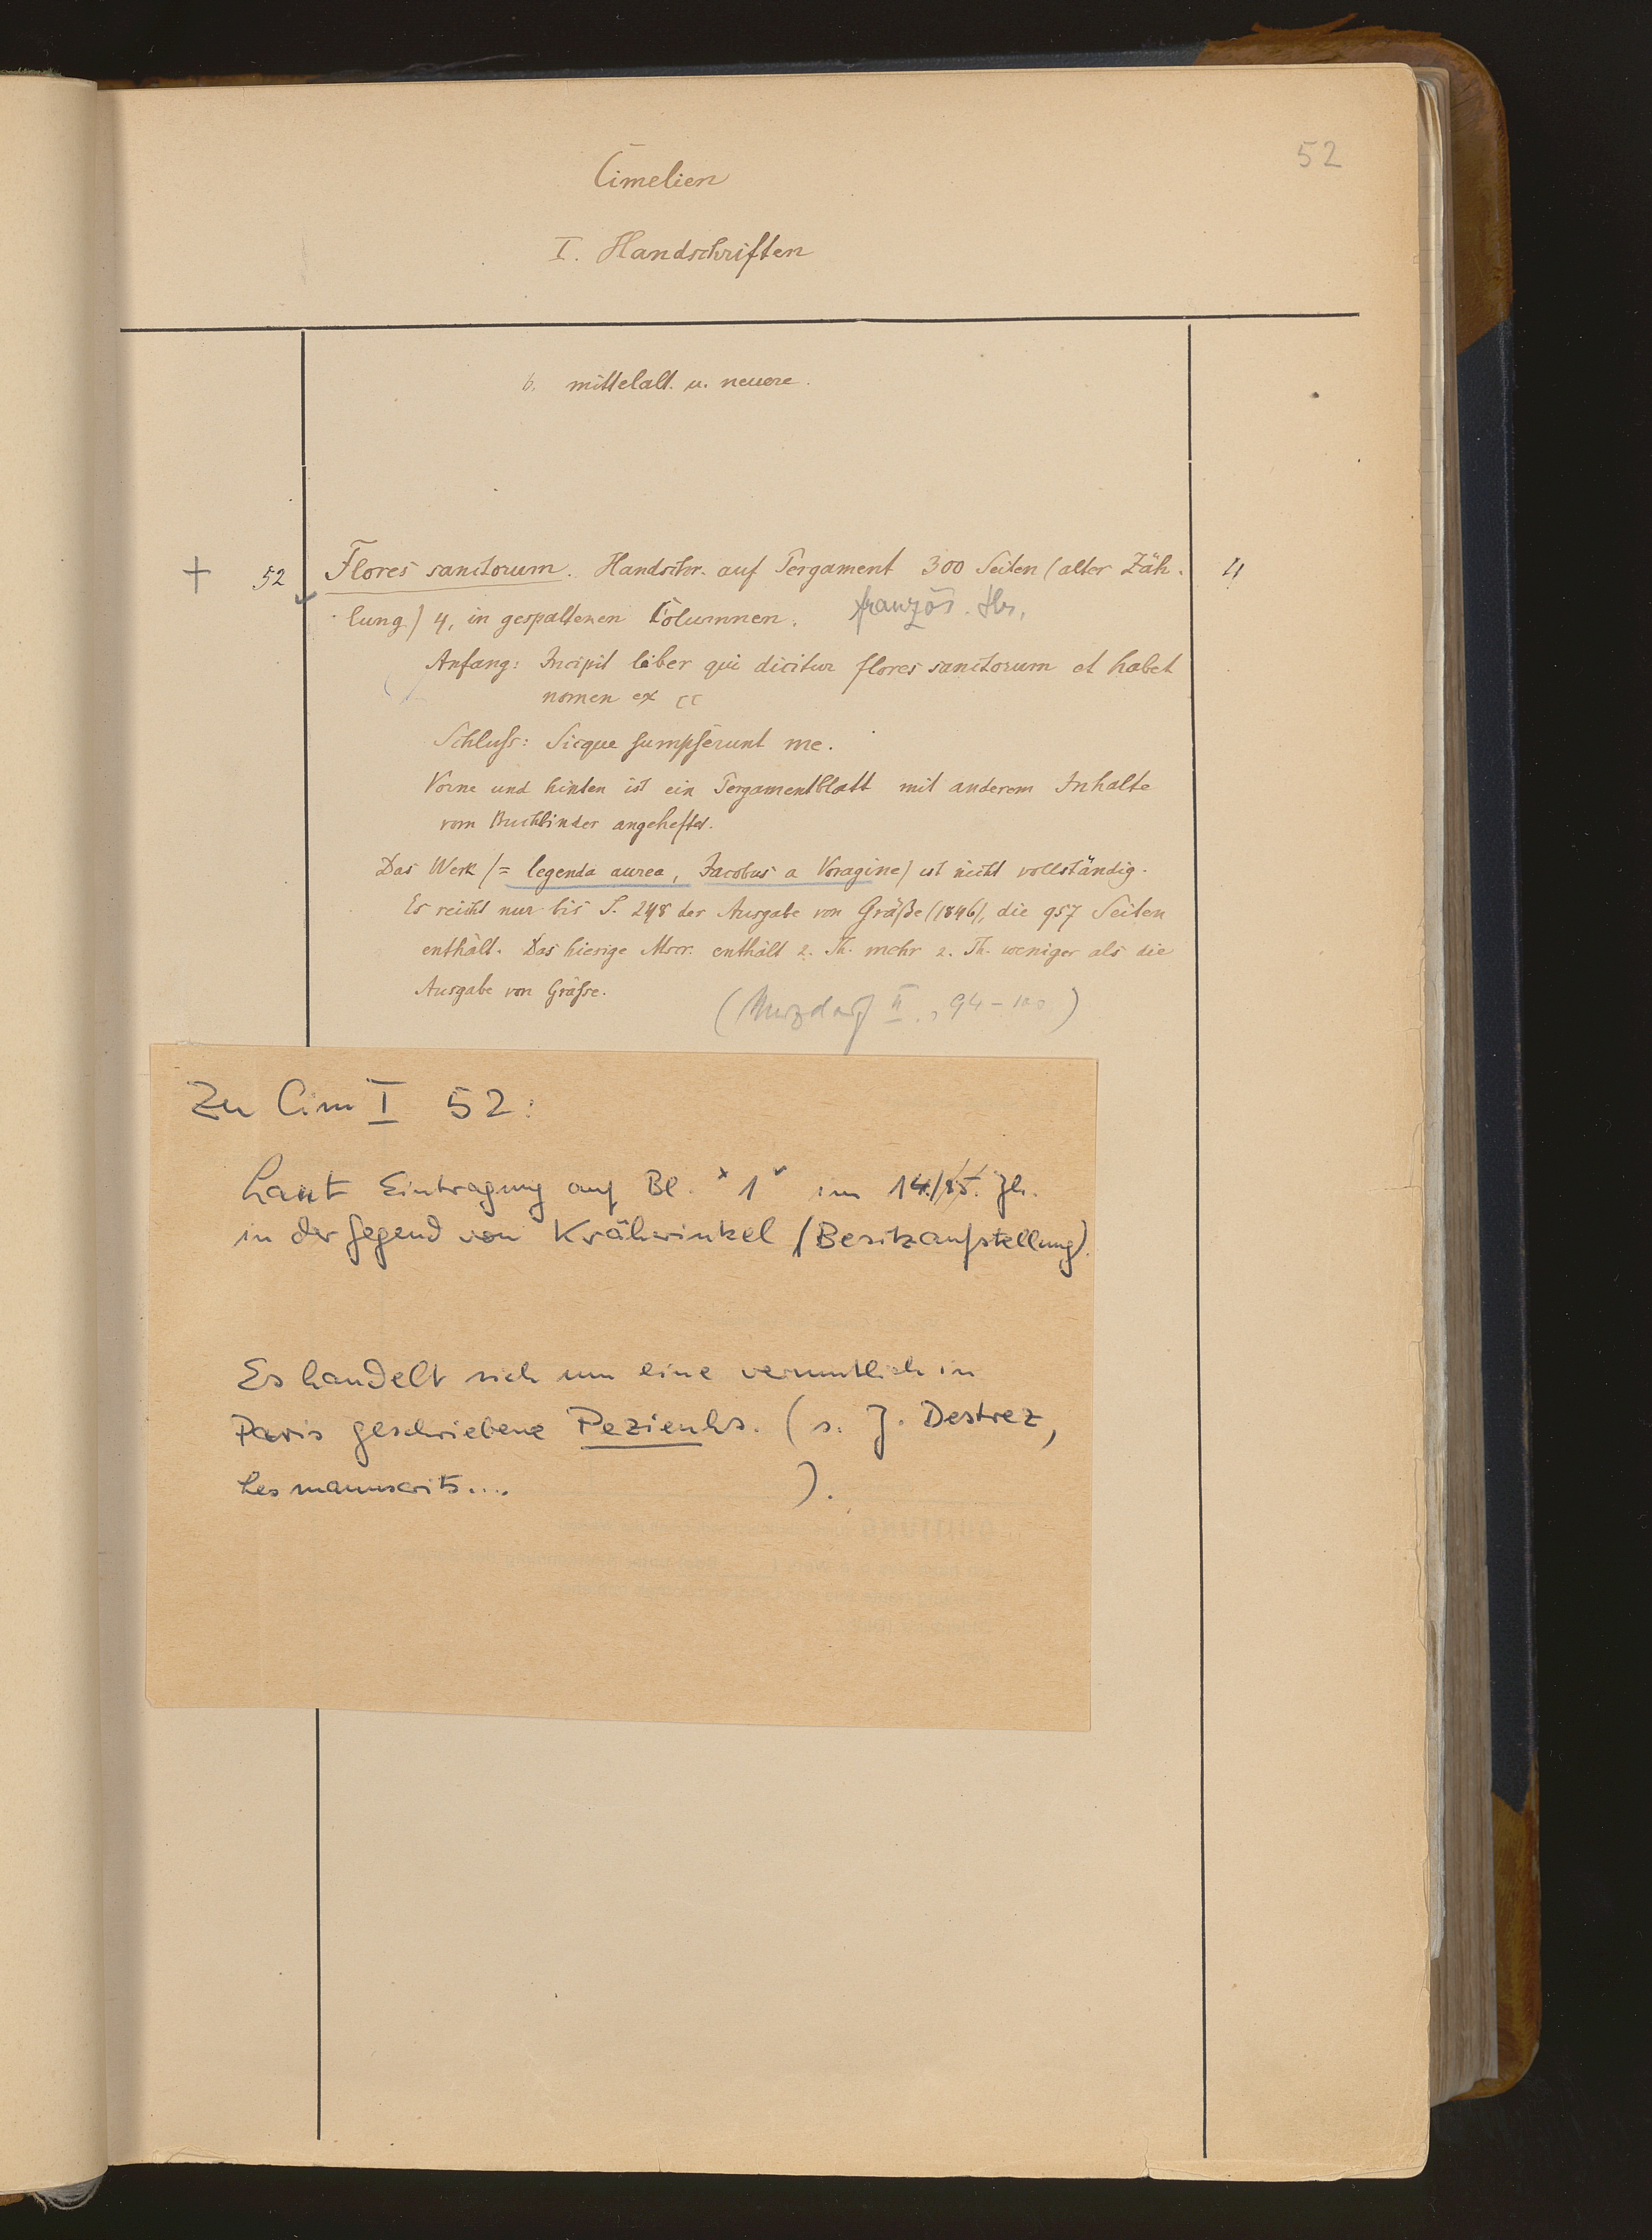 52
Cimelien
I. Handschriften
b. mittelalt. u. neuere.
+ 52 Flores sanctorum. Handschr. auf Pergament 300 Seiten (alter Zäh- 4
lung) 4, in gespaltenen Columnen. französ. Hs.
Anfang: Incipit liber qui dicitur flores sanctorum et habet
nomen ex cc
Schluſs: Sicque sumpserunt me.
Vorne und hinten ist ein Pergamentblatt mit anderem Inhalte
vom Buchbinder angeheftet.
Das Werk (= legenda aurea, Jacobus a Voragine) ist nicht vollständig.
Es reicht nur bis S. 248 der Ausgabe von Gräße (1846), die 957 Seiten
enthält. Das hiesige Mscr. enthält z. Th. mehr z. Th. weniger als die
Ausgabe von Gräſse.
(Merzdorf II, 94-100)
Zu Cim I 52:
Laut Eintragung auf Bl. "1" im 14./15. Jh.
in der Gegend von Krähwinkel (Besitzaufstellung).
Es handelt sich um eine vermutlich in
Paris geschriebene Pezienhs. (s. J. Destrez,
Les manuscrits.... ).